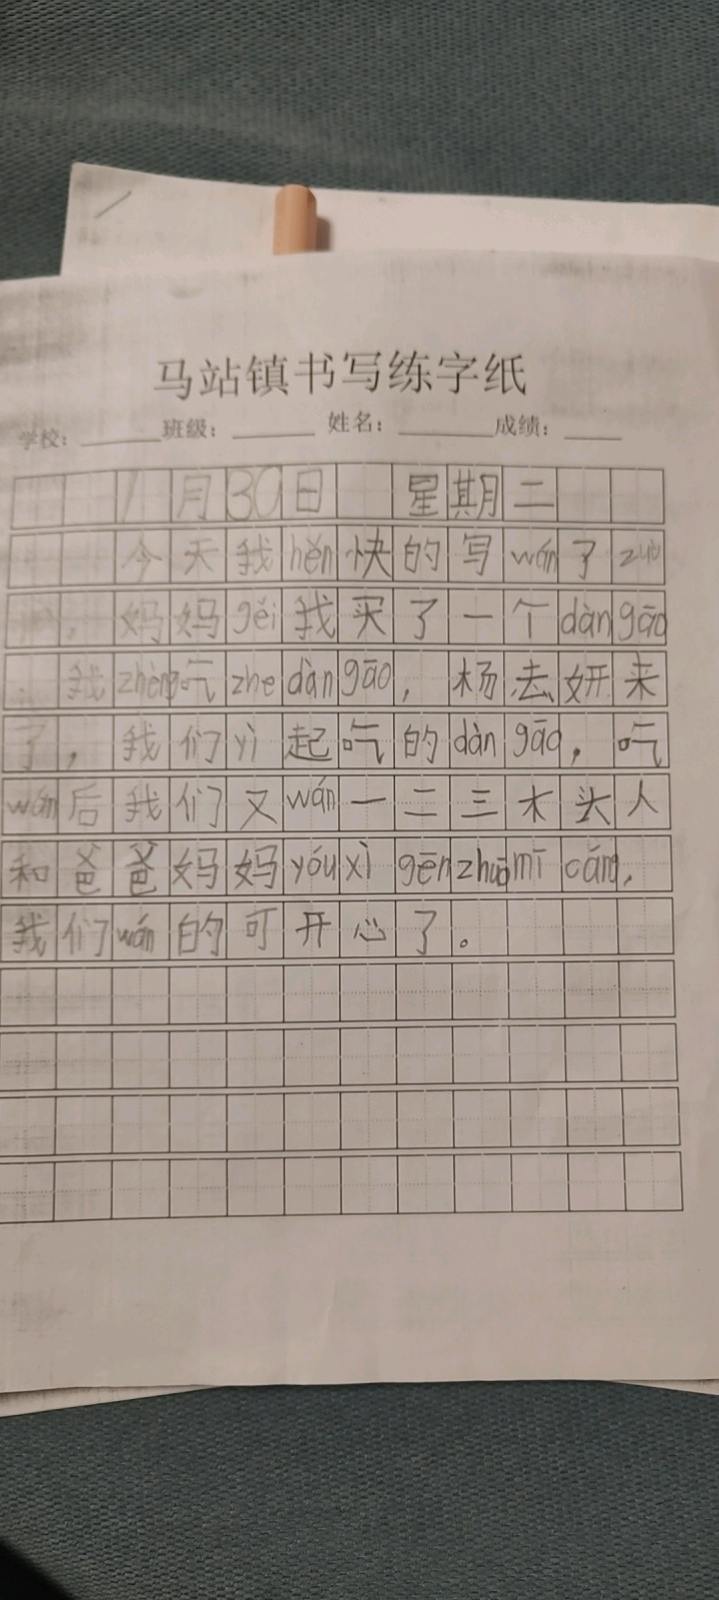 马站镇书写练字纸
学校： 班级： 姓名： 成绩：
1月30日 星期二
今天我hěn快的写wán了zuò
，妈妈gěi我买了一个dàngāo
。我zhèng吃zhedàngāo，杨去妍来
了，我们yì起吃的dàngāo，吃
wán后我们又wán一二三木头人
和爸爸妈妈yóuxìgēnzhuōmīcáng，
我们wán的可开心了。